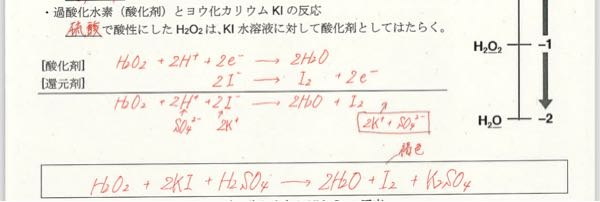 ・過酸化水素（酸化剤）とヨウ化カリウム KI の反応
硫酸で酸性にした H₂O₂ は、KI 水溶液に対して酸化剤としてはたらく。
[酸化剤] H₂O₂ + 2H⁺ + 2e⁻ → 2H₂O
[還元剤] 2I⁻ → I₂ + 2e⁻
H₂O₂ + 2H⁺ + 2I⁻ → 2H₂O + I₂
SO₄²⁻ 2K⁺ 2K⁺ + SO₄²⁻
褐色
H₂O₂ + 2KI + H₂SO₄ → 2H₂O + I₂ + K₂SO₄
H₂O₂ −1
H₂O −2